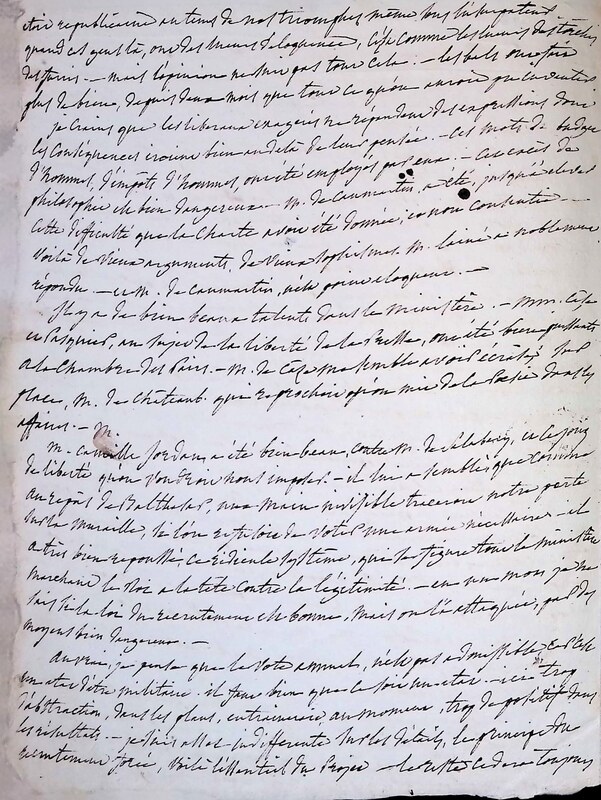 être républicaine au tems de nos triomphes même
quand cet gent là, ont des lueurs d'éloquence, c'est comme les lueurs des torches
des furies. — mais l'opinion ne sure pas tout cela. — les bals ont fait
plus de bien, depuis deux mois que tout ce qu'on auroit pu inventer
je crains que les libéraux exagérés ne répandent des expressions dont
les conséquences iroient bien au delà de leur pensée. — Ces mots de budget
d'hommes, d'impôts d'hommes, ont été employés par eux. — Ces excès de
philosophie est bien dangereuse — M. de Caumartin, a été, jusqu'à élever
Cette difficulté que la Charte avoit été donnée, et non consentie —
Voilà de vieux arguments, de vieux sophismes. M. lainé a noblement
répondu — et M. de Caumartin, n'est point éloquent. —
Il y a de bien beaux talents dans le ministère. — MM. Caze
et Pasquier, au sujet de la liberté de la Presse, ont été bien puissants
à la Chambre des Pairs. — M. de Caze me semble avoir écrasé, sur
place, M. de Châteaub. qui reprochoit qu'on mit de la Poësie dans les
affaires. — M.
M. Camille Jordan a été bien beau, contre M. de Salaberry, et ce joug
de liberté qu'on voudroit nous imposer. — il lui a semblé que comme
au repas de Balthasar, une main invisible traceroit notre perte
sur la muraille, si l'on refusoit de voter une armée nécessaire — il
a très bien repoussé, ce ridicule système, qui se figure tout le ministère
marchant le Roi à la tête contre la légitimité. — en un mot je ne
sais si la loi du recrutement est bonne, mais on l'a attaquée, par des
moyens bien dangereux. —
Au vrai, je pense que le vote annuel, n'est pas admissible,
un état d'être militaire. il faut bien que ce soit un état — trop
d'abstraction, dans les plans, entraineroit au moment, trop de positif dans
les résultats — je suis assez indifférente sur les détails, le principe du
recrutement forcé, voilà l'essentiel du Projet — le reste cédera toujours